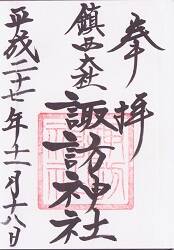 奉拝
鎮西大社
諏訪神社
平成二十七年十一月十八日